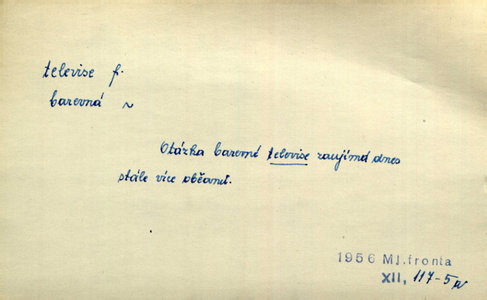 televise f.
barevná ~
Otázka barevné televise zaujímá dnes
stále více občanů.
1956 Ml.fronta
XII, 117-5